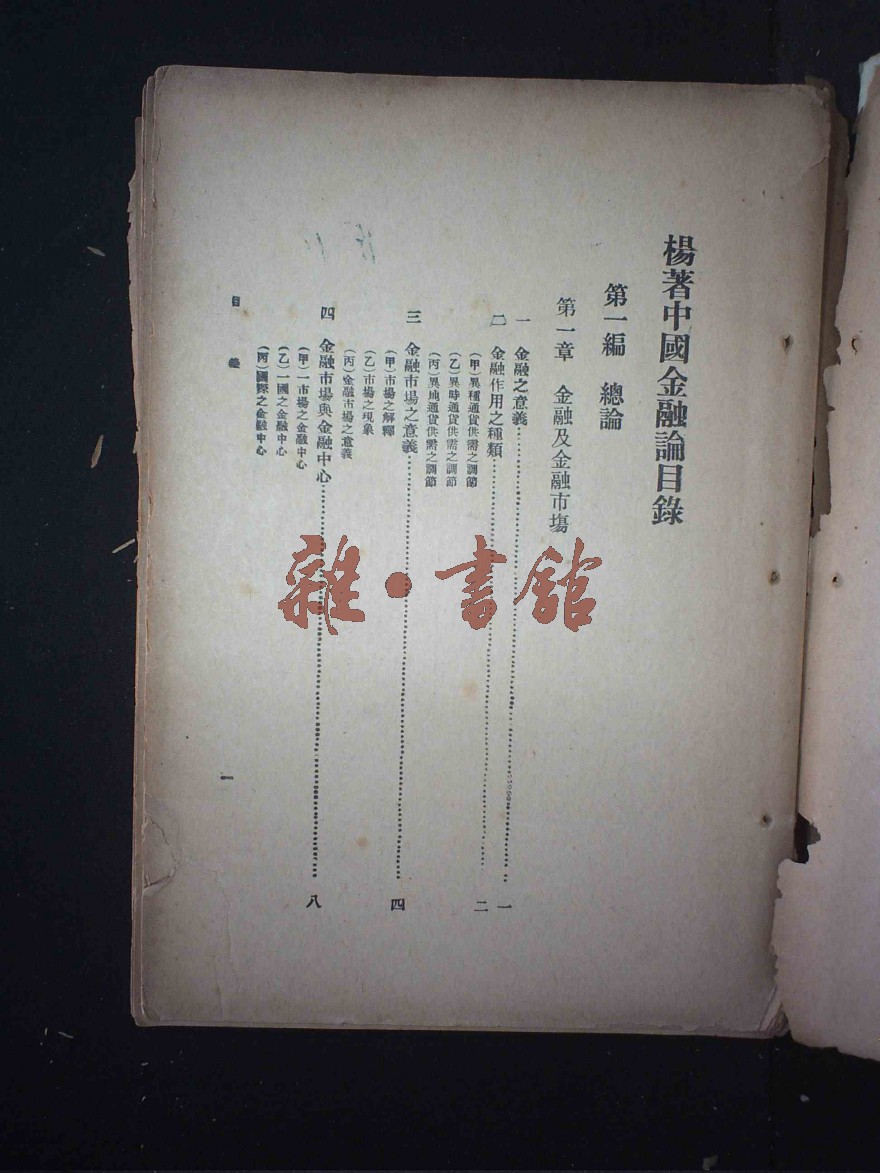 楊著中國金融論目錄
第一編　總論
第一章　金融及金融市塲
一　金融之意義……一
二　金融作用之種類……二
(甲)異種通貨供需之調節
(乙)異時通貨供需之調節
(丙)異地通貨供需之調節
三　金融市塲之意義……四
(甲)市塲之解釋
(乙)市塲之現象
(丙)金融市塲之意義
四　金融市塲與金融中心……八
(甲)一市塲之金融中心
(乙)一國之金融中心
(丙)國際之金融中心
目　　一
雜·書館